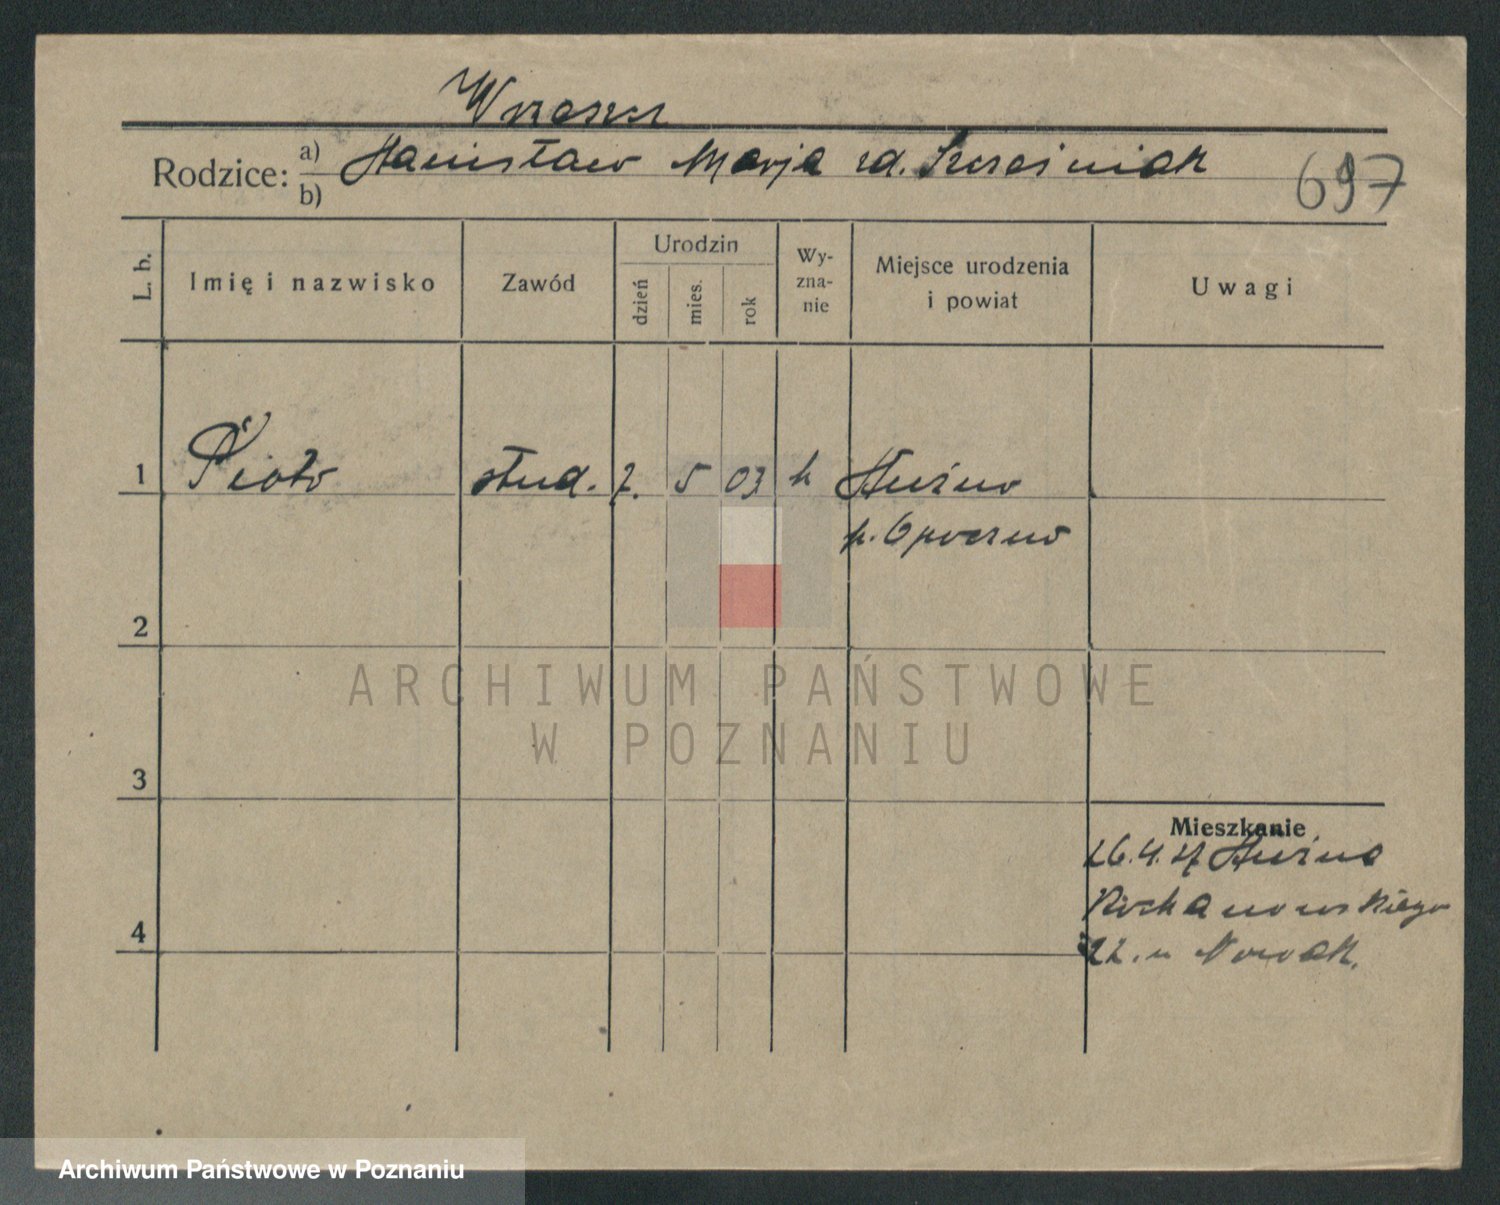 Wrzeszcz
Rodzice: a) Stanisław Marja zd. Szcześniak
b)
697
L. b.
Imię i nazwisko
Zawód
Urodzin
dzień
mies.
rok
Wy-
zna-
nie
Miejsce urodzenia
i powiat
Uwagi
1 Piotr stud. 7. 5 03
p. Opoczno
2
3
4
Mieszkanie
26.4.27
Kochanowskiego
22. u Nowak.
ARCHIWUM PAŃSTWOWE
W POZNANIU
Archiwum Państwowe w Poznaniu